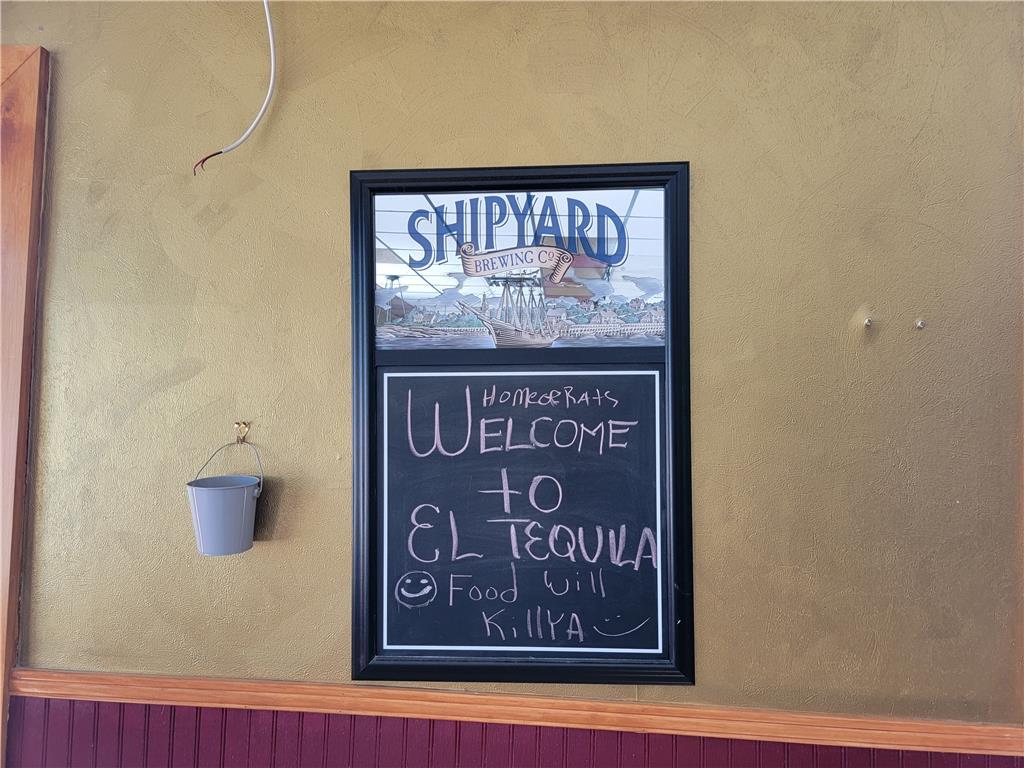 SHIPYARD
BREWING Co
HOMEOFRATS
WELCOME
to
EL TEQUILA
Food Will
KillYA